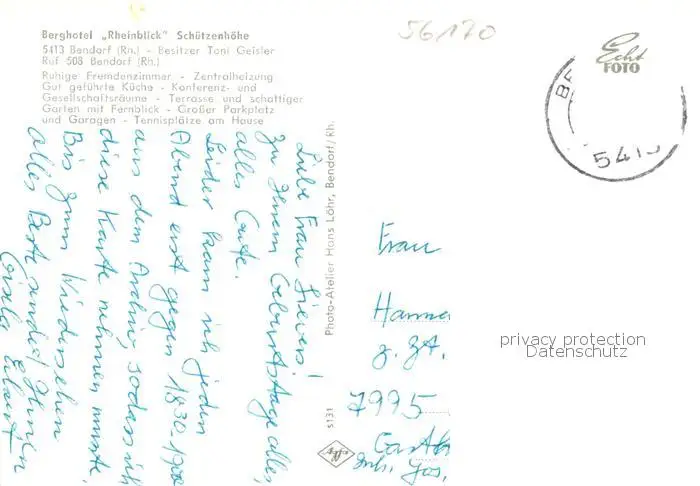 Berghotel „Rheinblick" Schützenhöhe
5413 Bendorf (Rh.) - Besitzer Toni Geisler
Ruf 508 Bendorf (Rh.)
Ruhige Fremdenzimmer - Zentralheizung
Gut geführte Küche - Konferenz- und
Gesellschaftsräume - Terrasse und schattiger
Garten mit Fernblick - Großer Parkplatz
und Garagen - Tennisplätze am Hause
56170
Echt
FOTO
BE
5413
Liebe Frau Sievers!
Zu Ihrem Geburtstage alles,
alles Gute.
Leider kam ich jeden
Abend erst gegen 1830-1900
aus dem Archiv, sodass ich
diese Karte nehmen musste.
Bis zum Wiedersehen
alles Beste sendet Ihnen
Gisela
Photo-Atelier Hans Löhr, Bendorf/Rh.
s131
Frau
Hanna
z. Zt.
7995
Inh. Jos.
privacy protection
Datenschutz